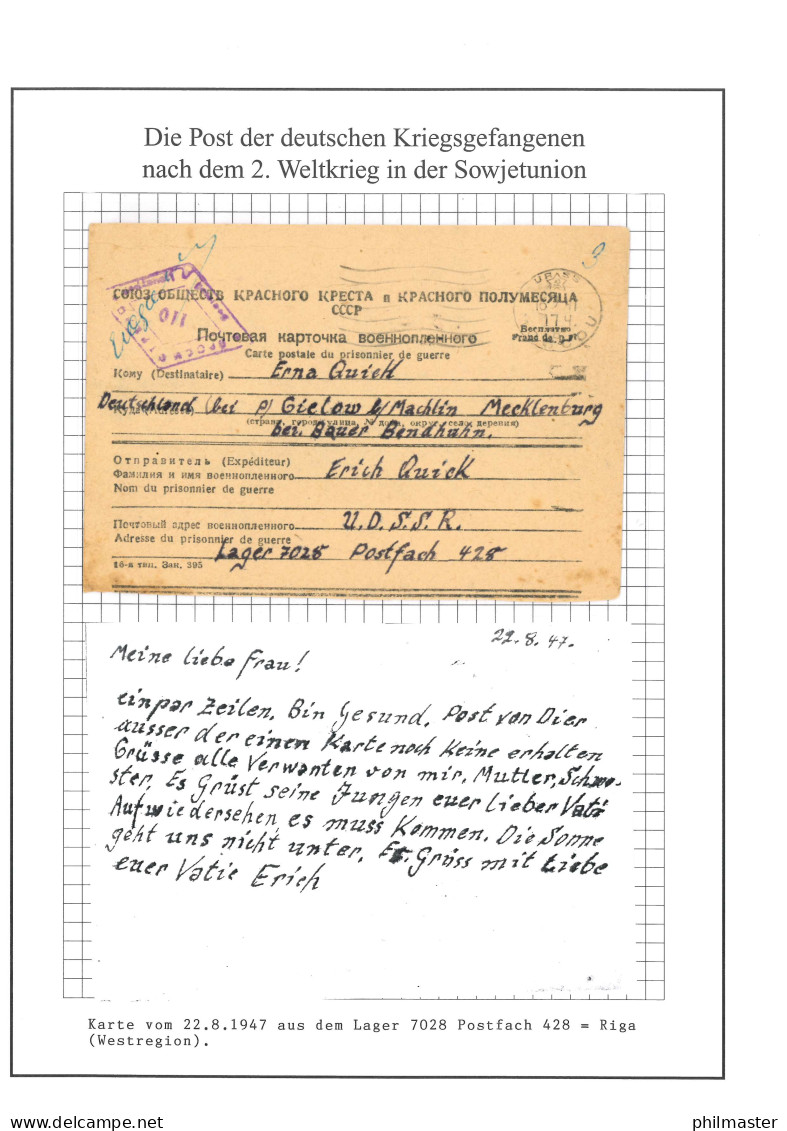 Die Post der deutschen Kriegsgefangenen
nach dem 2. Weltkrieg in der Sowjetunion
110
СОЮЗ ОБЩЕСТВ КРАСНОГО КРЕСТА и КРАСНОГО ПОЛУМЕСЯЦА
СССР
Почтовая карточка военнопленного
Бесплатно
Franc de port
Carte postale du prisonnier de guerre
Кому (Destinataire) Erna Quick
Deutschland, (bei p) Gielow b/Machlin Mecklenburg
(страна, город, улица, № дома, округ, село, деревня)
bei. Bauer Bendhuhn.
Отправитель (Expéditeur)
Фамилия и имя военнопленного Erich Quick
Nom du prisonnier de guerre
Почтовый адрес военнопленного U.D.S.S.R.
Adresse du prisonnier de guerre
Lager 7028 Postfach 428
16-я тип. Зак. 395
22.8.47.
Meine liebe Frau!
einpar Zeilen. Bin Gesund. Post von Dier
ausser der einen Karte noch Keine erhalten
Grüsse alle Verwanten von mir, Mutter, Schwe-
ster. Es Grüst seine Jungen euer lieber Vati
Aufwiedersehen, es muss Kommen. Die Sonne
geht uns nicht unter. Es. Grüss mit Liebe
euer Vatie Erich
Karte vom 22.8.1947 aus dem Lager 7028 Postfach 428 = Riga
(Westregion).
delcampe.net
philmaster